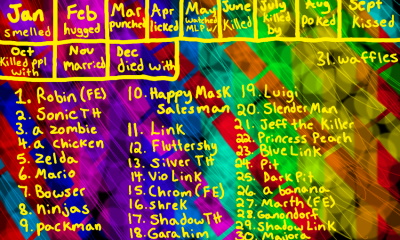 Jan smelled
Feb hugged
Mar punched
Apr licked
May watched MLP w/
June Killed
July Killed by
Aug Poked
Sept Kissed
Oct Killed ppl with
Nov married
Dec died with
1. Robin (FE)
2. Sonic TH
3. a zombie
4. a chicken
5. Zelda
6. Mario
7. Bowser
8. ninjas
9. packman
10. Happy Mask Salesman
11. Link
12. Fluttershy
13. Silver TH
14. Vio Link
15. Chrom (FE)
16. shrek
17. Shadow TH
18. Garahim
19. Luigi
20. Slender Man
21. Jeff the Killer
22. Princess Peach
23. Blue Link
24. Pit
25. Dark Pit
26. a banana
27. Marth (FE)
28. Ganondorf
29. Shadow Link
30. Majora
31. waffles